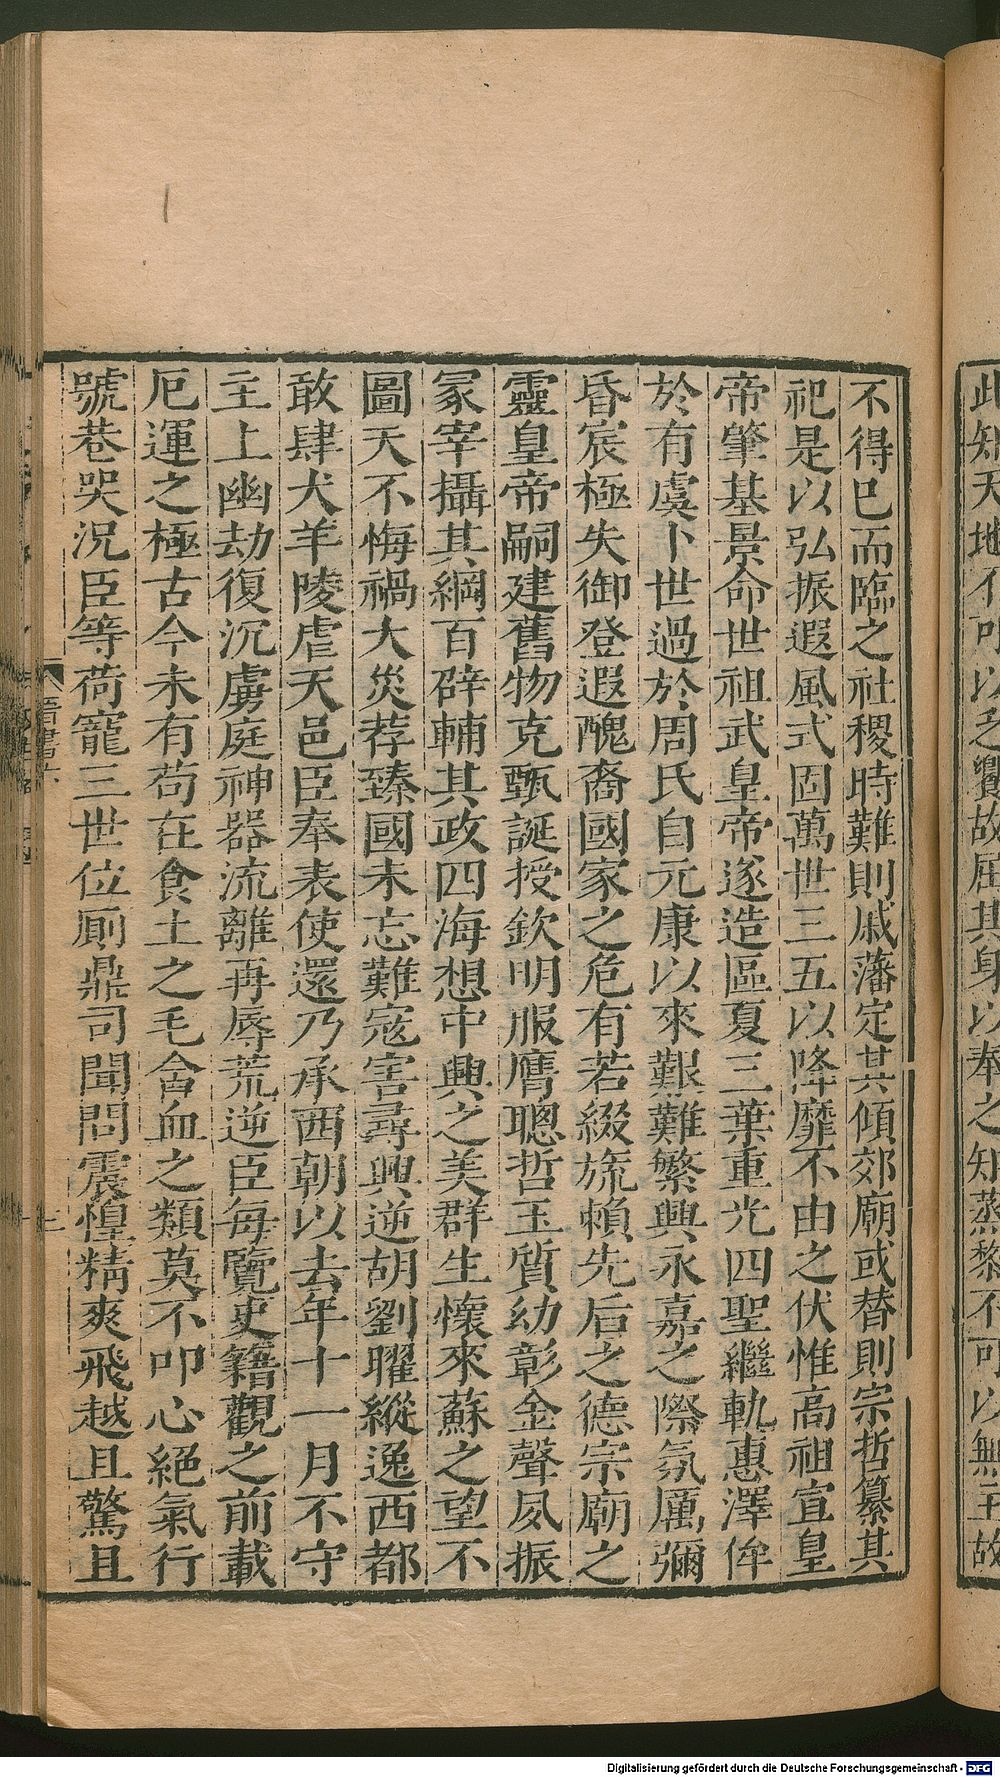 此知天地不可以乏饗故屈其身以奉之知蒸黎不可以無主故
不得巳而臨之社稷時難則戚藩定其傾郊廟或替則宗哲纂其
祀是以弘振遐風式固萬世三五以降靡不由之伏惟高祖宣皇
帝肇基景命世祖武皇帝遂造區夏三葉重光四聖繼軌惠澤侔
於有虞卜世過於周氏自元康以來艱難繁興永嘉之際氛厲彌
昏宸極失御登遐醜裔國家之危有若綴旒賴先后之德宗廟之
靈皇帝嗣建舊物克甄誕授欽明服膺聰哲玉質幼彰金聲夙振
冢宰攝其綱百辟輔其政四海想中興之美群生懷來蘇之望不
圖天不悔禍大災荐臻國未忘難寇害尋興逆胡劉曜縱逸西都
敢肆犬羊陵虐天邑臣奉表使還乃承西朝以去年十一月不守
主上幽劫復沉虜庭神器流離再辱荒逆臣每覽史籍觀之前載
厄運之極古今未有苟在食土之毛含血之類莫不叩心絕氣行
號巷哭況臣等荷寵三世位廁鼎司聞問震惶精爽飛越且驚且
晉書六
Digitalisierung gefördert durch die Deutsche Forschungsgemeinschaft - DFG